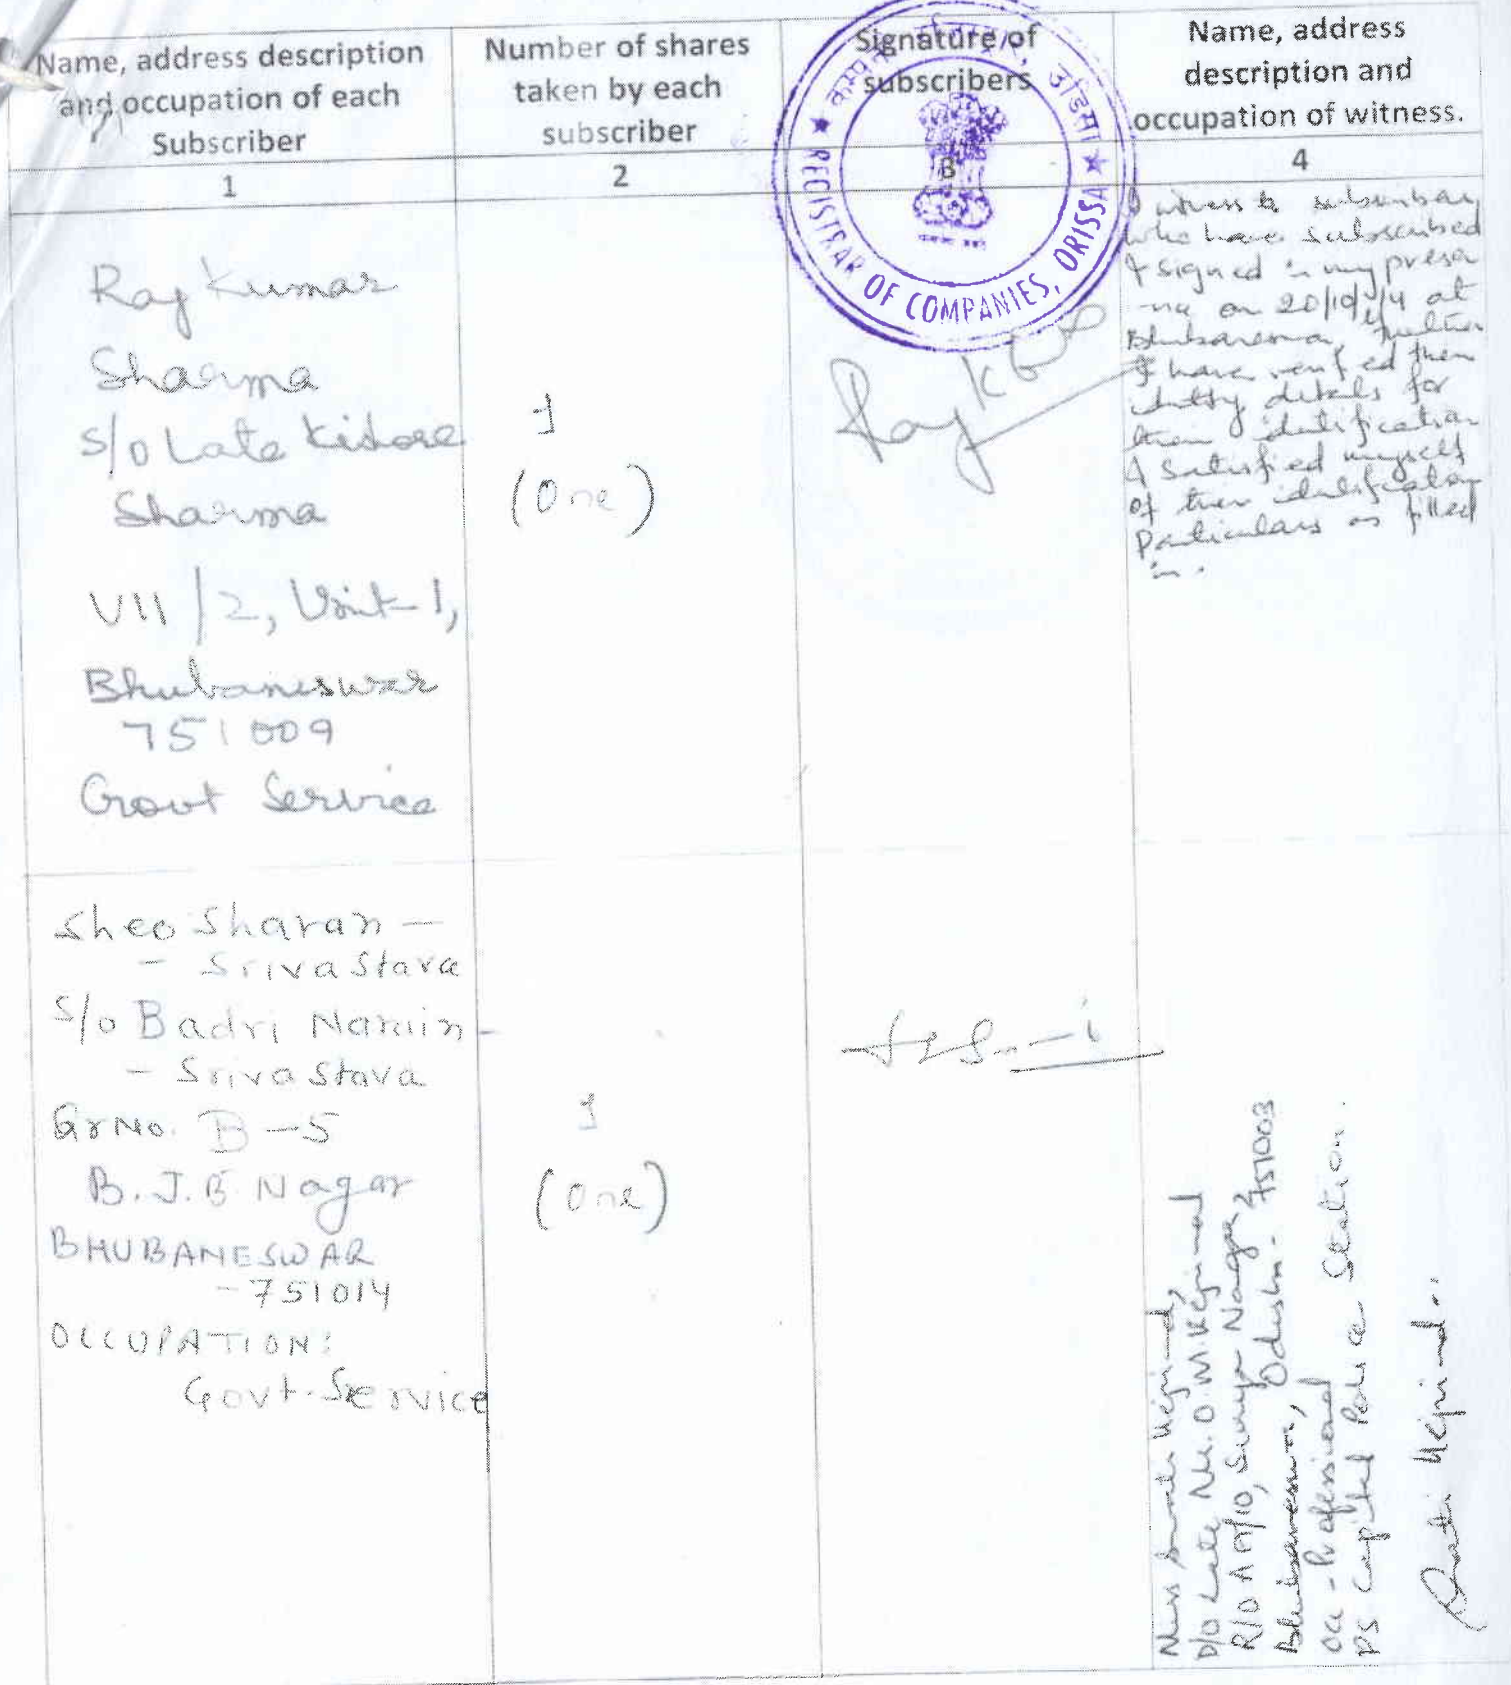 Name, address description
and occupation of each
Subscriber
Number of shares
taken by each
subscriber
Signature of
subscribers
Name, address
description and
occupation of witness.
1
2
3
4
उडिसा
REGISTRAR OF COMPANIES, ORISSA
Raj Kumar
Sharma
S/o Late Kishore
Sharma
VII/2, Unit-1,
Bhubaneswar
751009
Govt Service
1
(One)
Raj K
I witness to subscriber
who have subscribed
& signed in my presen
-ce on 20/10/14 at
Bhubaneswar, further
I have verified their
identity details for
their identification
& satisfied myself
of their identification
Particulars as filled
in.
Sheo Sharan -
- Srivastava
S/o Badri Narain -
- Srivastava
Qr No. B-5
B.J.B Nagar
BHUBANESWAR
-751014
OCCUPATION:
Govt. Service
1
(One)
Miss Kejriwal,
D/O Late Mr. O.M. Kejriwal
R/O A M/10, Surya Nagar,
Bhubaneswar, Odisha - 751003
Occ - Professional
PS Capital Police Station.
Kejriwal